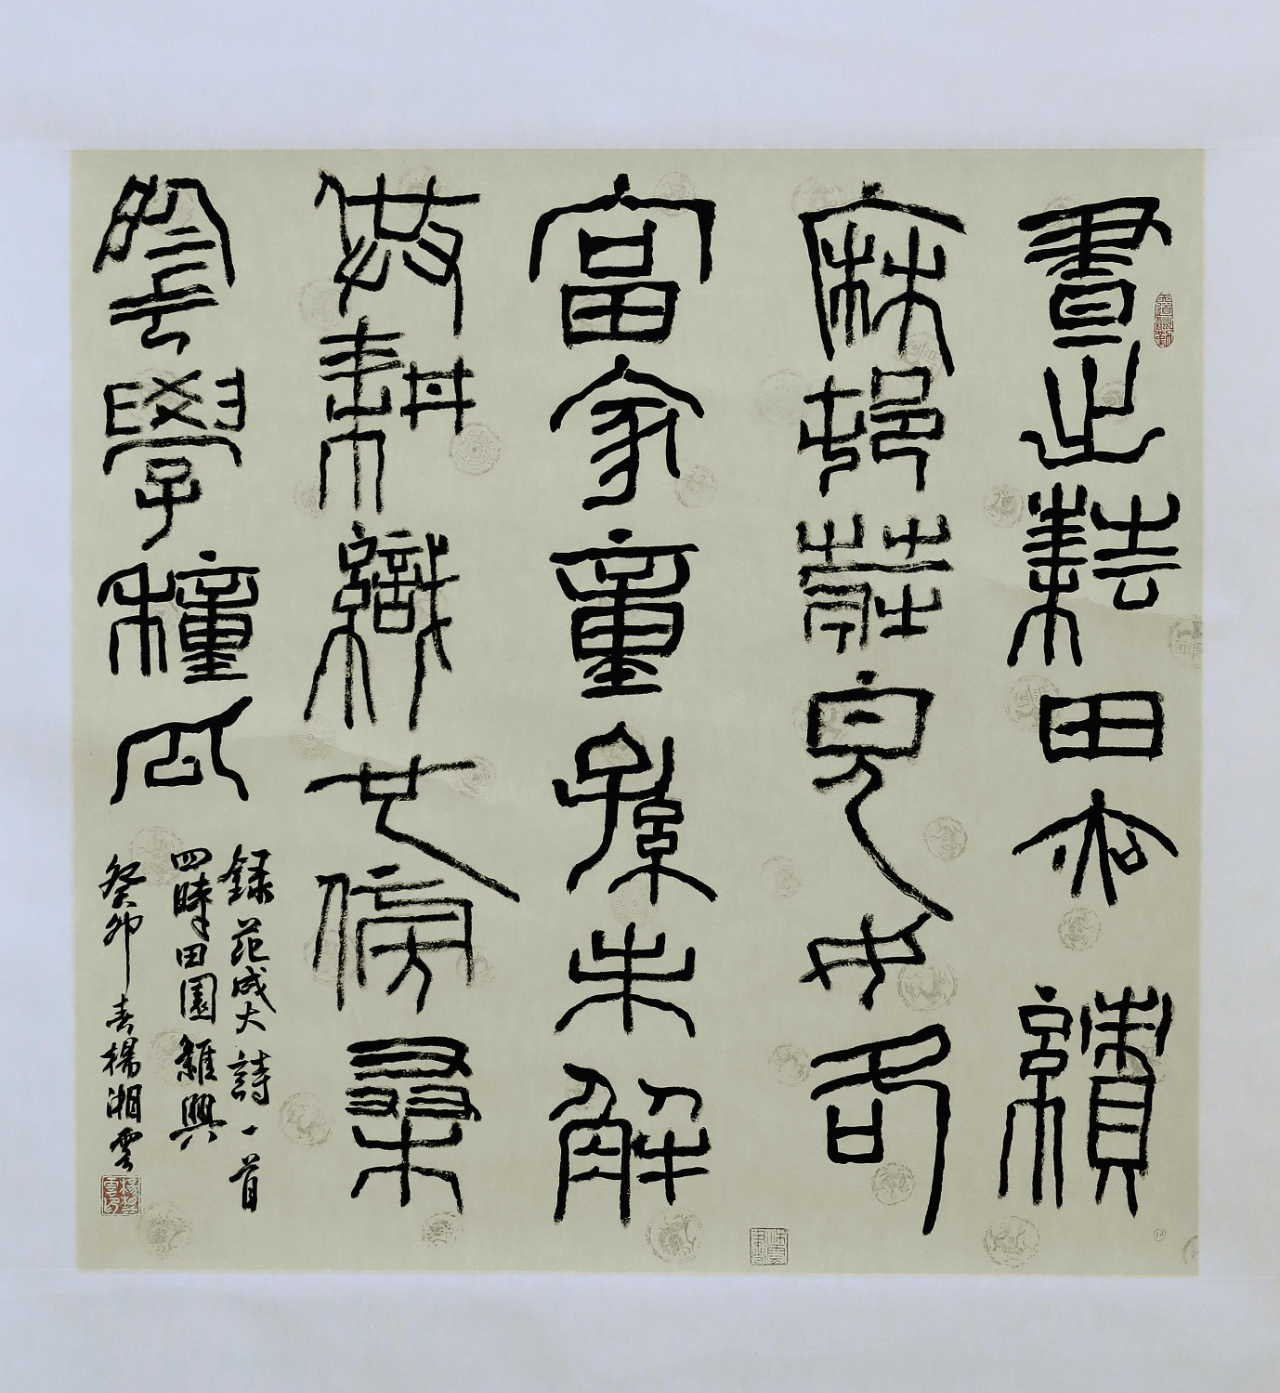 晝出耘田夜績
麻邨莊兒女各
當家童孫未解
供耕織也傍桑
陰學種瓜
錄范成大詩一首
四時田園雜興
癸卯春楊湘雲